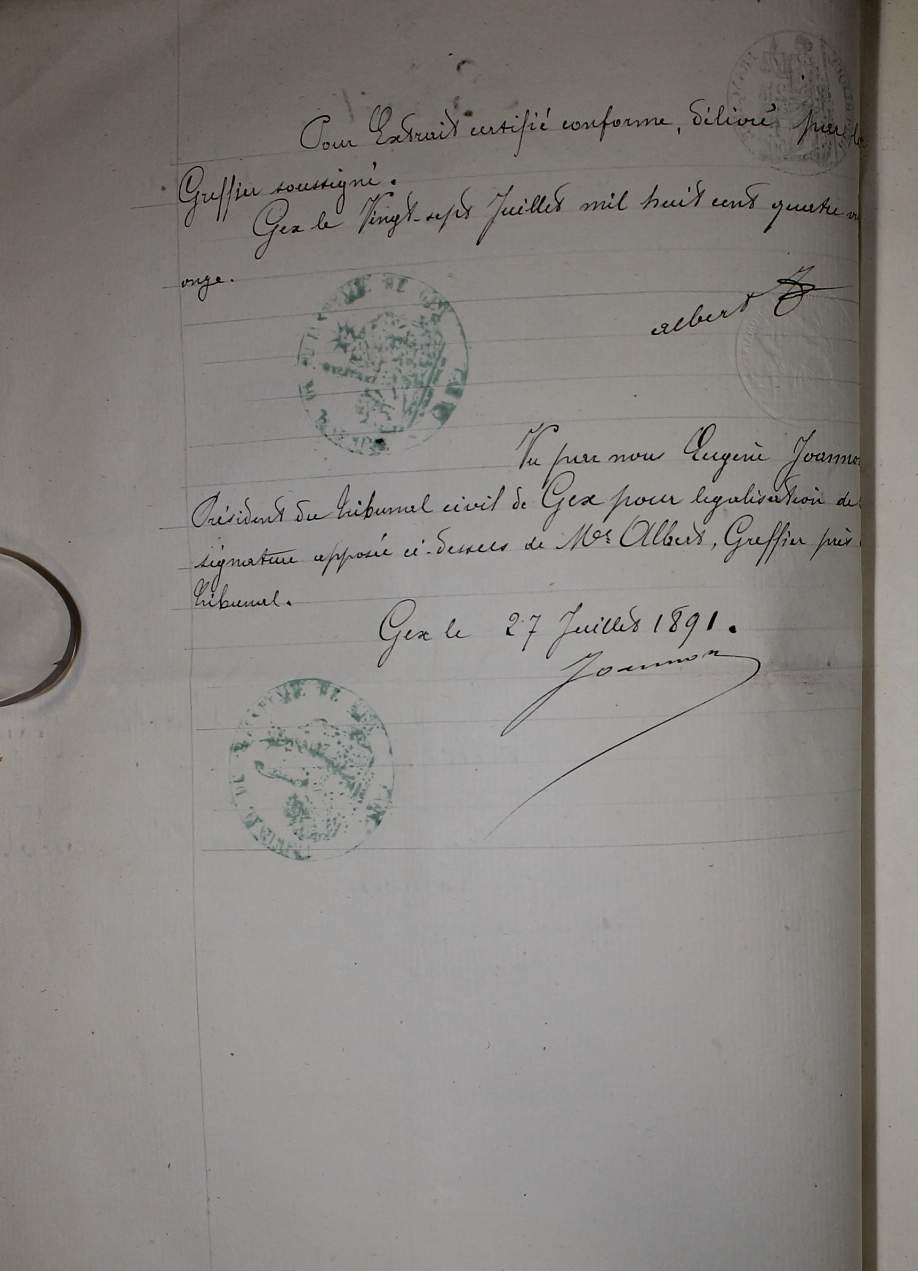 Pour Extrait certifié conforme, délivré par le
Greffier soussigné.
Gex le Vingt-sept Juillet mil huit cent quatre
onze.
albert
Vu par nous Eugène
Président du tribunal civil de Gex pour legalisation de
signature apposée ci-dessus de Me Albert, Greffier près
tribunal.
Gex le 27 Juillet 1891.
Joannon